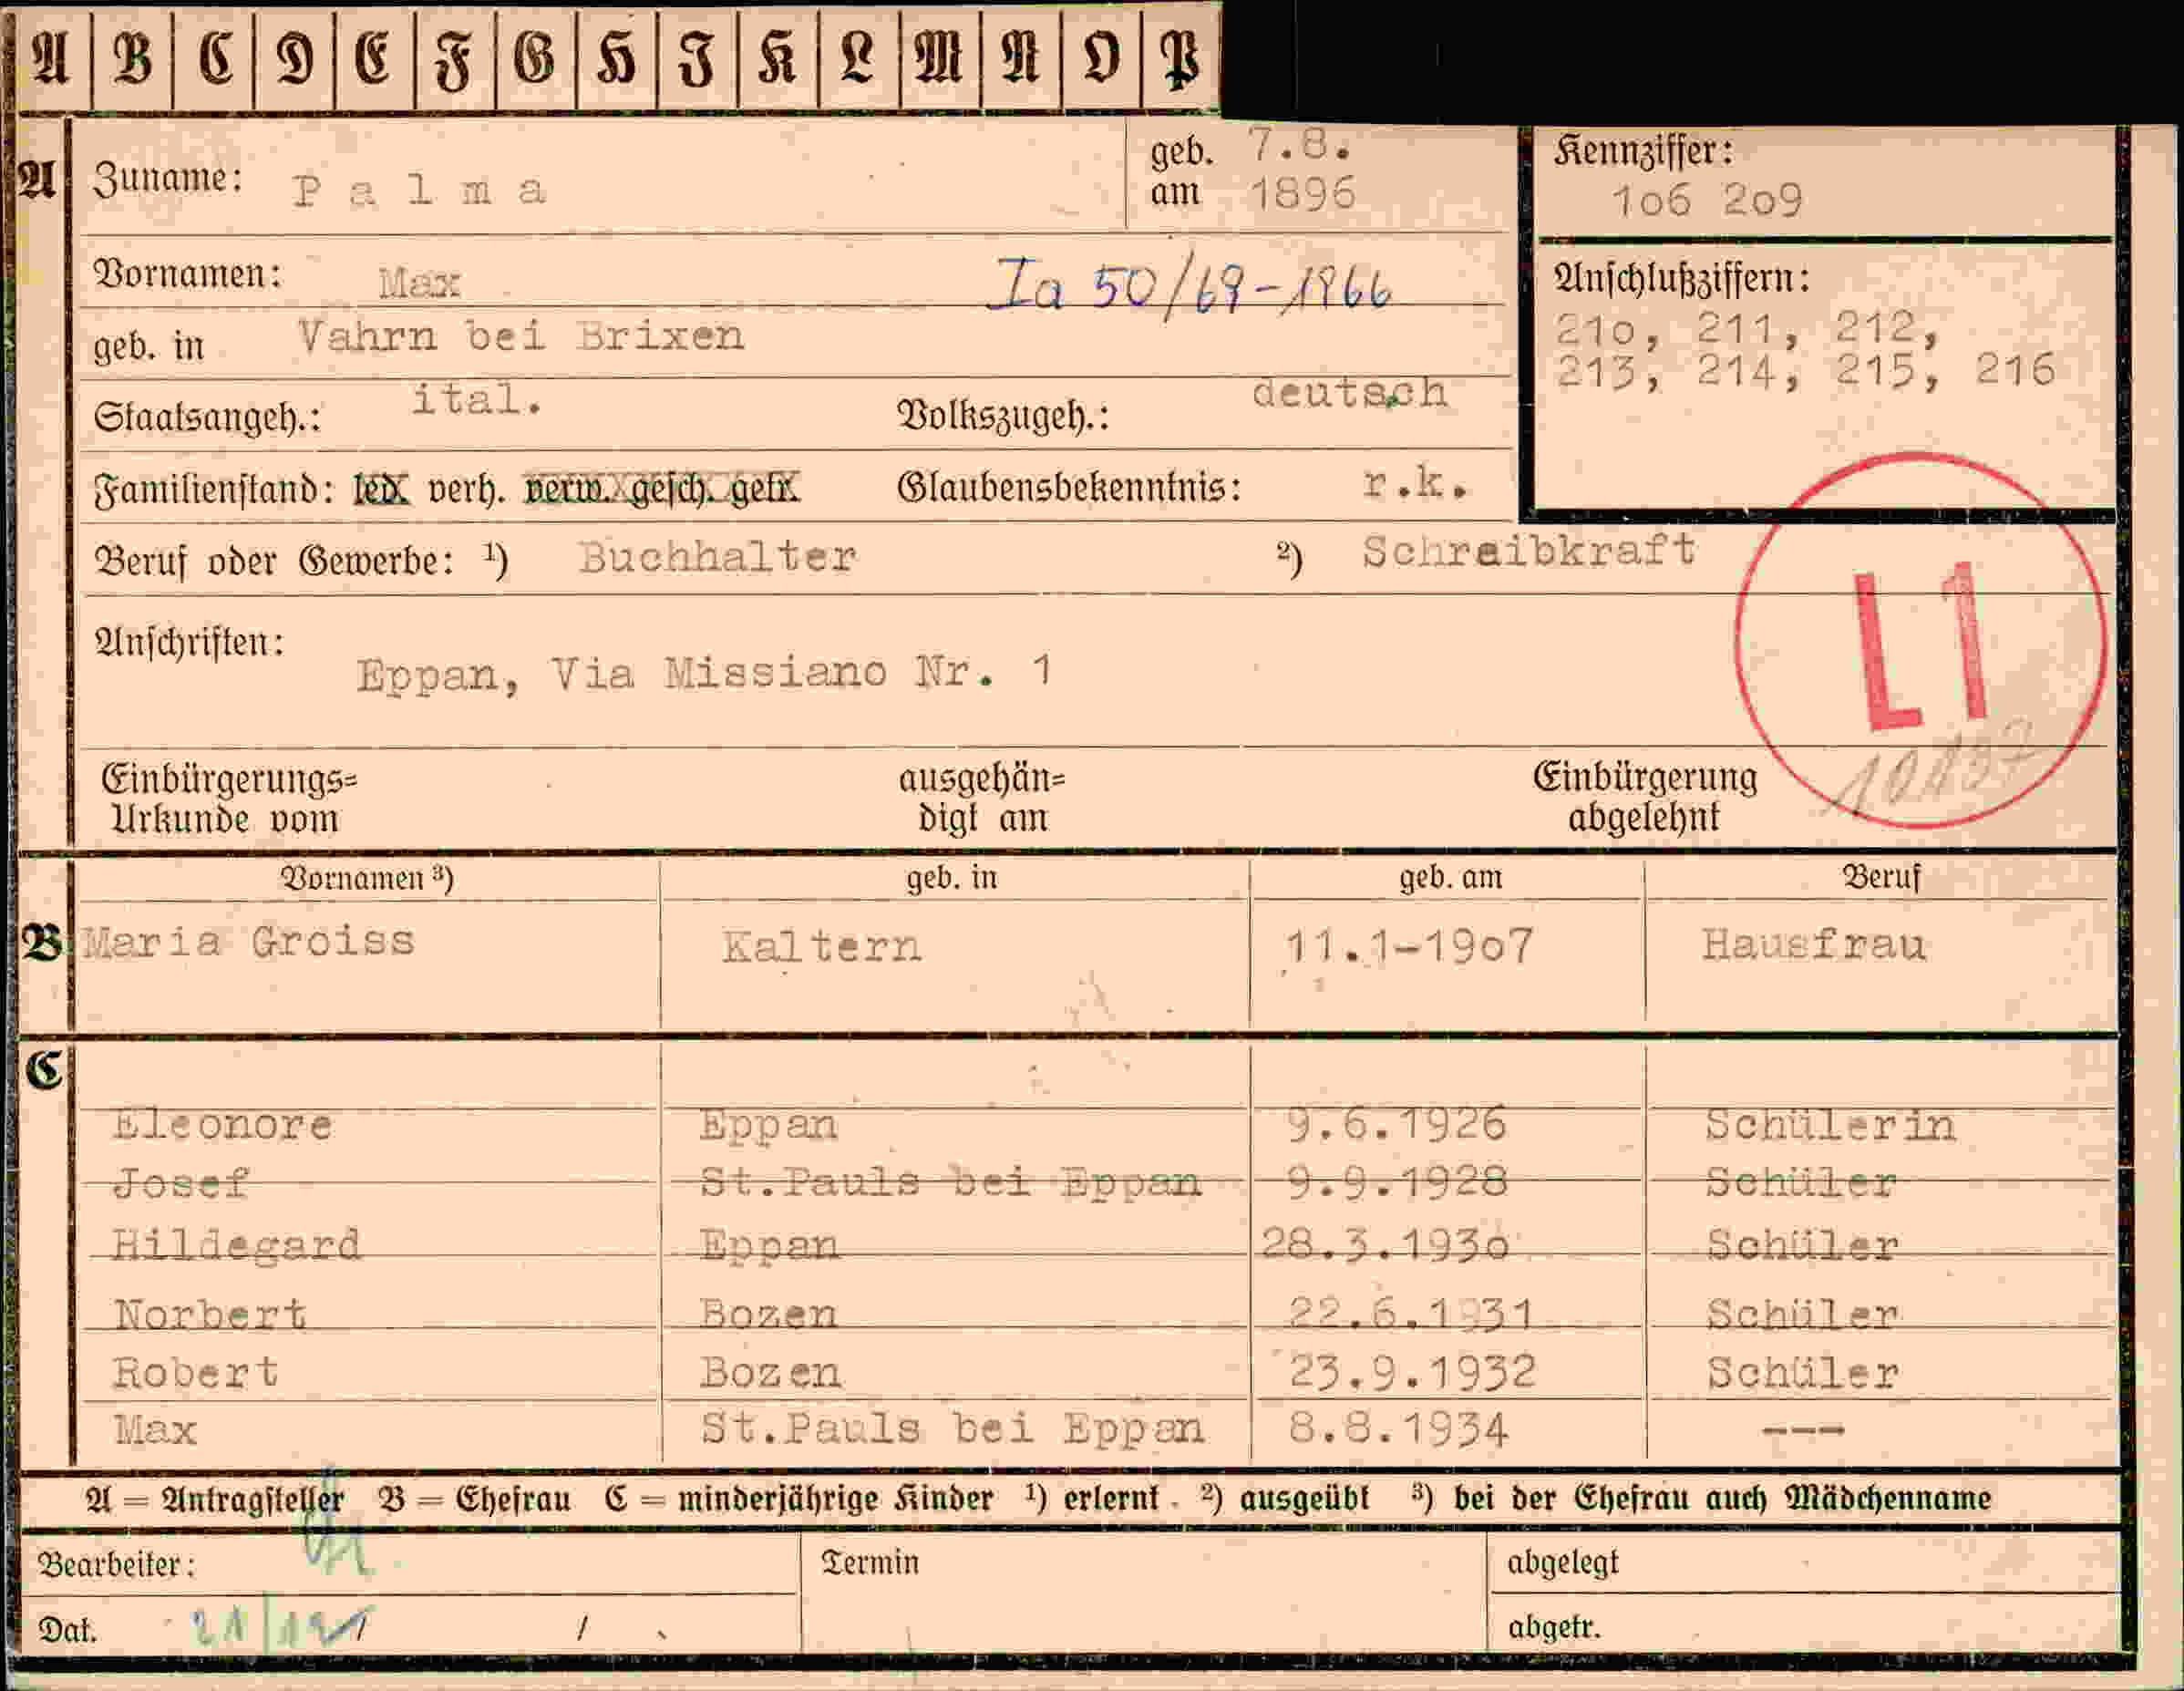 A B C D E F G H I K L M N O P
A Zuname: Palma geb. am 7.8. 1896
Kennziffer: 1o6 2o9
Vornamen: Max Ia 50/69-1966
Anschlußziffern:
21o, 211, 212,
213, 214, 215, 216
geb. in Vahrn bei Brixen
Staatsangeh.: ital. Volkszugeh.: deutsch
Familienstand: led. verh. verw. gesch. getr. Glaubensbekenntnis: r.k.
Beruf oder Gewerbe: ¹) Buchhalter ²) Schreibkraft
L1
Anschriften:
Eppan, Via Missiano Nr. 1
Einbürgerungs=
Urkunde vom
ausgehän=
digt am
Einbürgerung
abgelehnt
Vornamen ³) geb. in geb. am Beruf
B Maria Groiss Kaltern 11.1-19o7 Hausfrau
C
Eleonore Eppan 9.6.1926 Schülerin
Josef St.Pauls bei Eppan 9.9.1928 Schüler
Hildegard Eppan 28.3.193o Schüler
Norbert Bozen 22.6.1931 Schüler
Robert Bozen 23.9.1932 Schüler
Max St.Pauls bei Eppan 8.8.1934 ---
A = Antragsteller B = Ehefrau C = minderjährige Kinder ¹) erlernt ²) ausgeübt ³) bei der Ehefrau auch Mädchenname
Bearbeiter: Termin abgelegt
Dat. / abgetr.